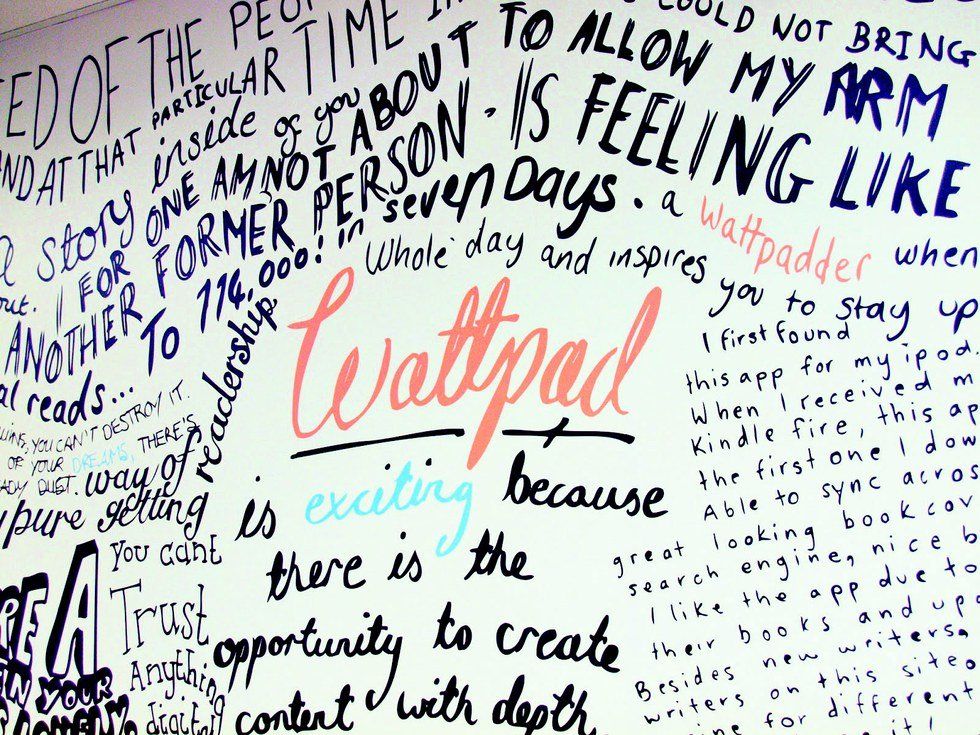 ED OF THE PEO TIME IN
AND AT THAT PARTICULAR
COULD NOT BRING
TO ALLOW MY ARM
a story inside of you
out. I ONE AM NOT ABOUT
FOR FORMER PERSON. IS FEELING LIKE
ANOTHER TO 114,000! in seven Days. a wattpadder when
al reads... Whole day and inspires you to stay up
Wattpad
is exciting because
there is the
opportunity to create
content with depth
WINS, YOU CAN'T DESTROY IT.
OF YOUR DREAMS, THERE'S
ADY DUST. way of readership
pure getting
RE A
YOUR
you cant
Trust
Anything
digital
I first found
this app for my ipod.
When I received m
Kindle fire, this ap
the first one I dow
Able to sync acros
great looking book cov
search engine, nice b
I like the app due to
their books and upd
Besides new writers,
writers on this site
for different
it!